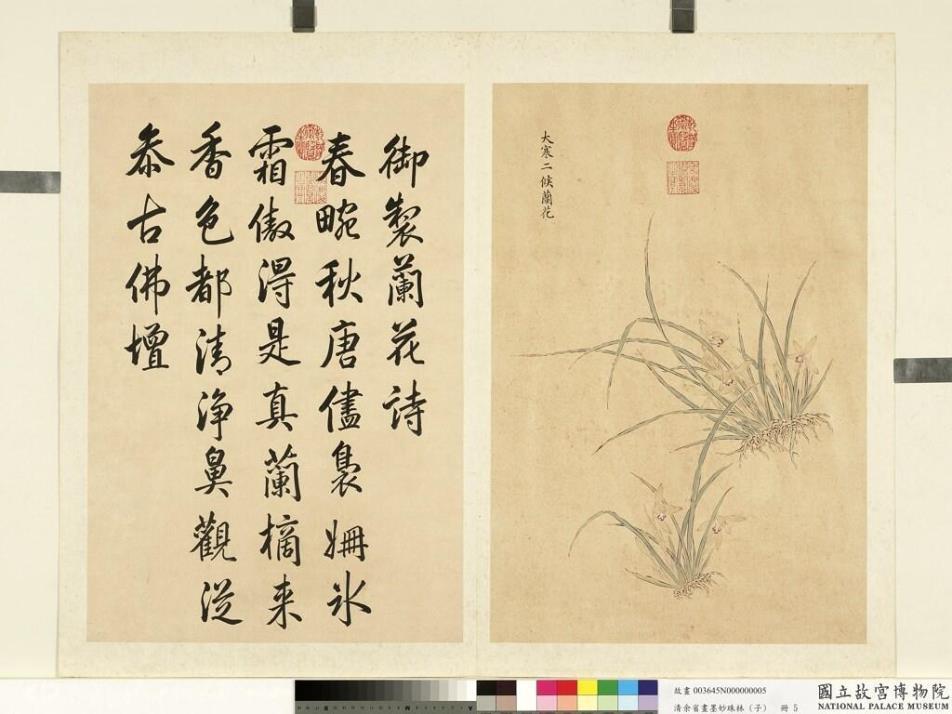 御製蘭花詩
春畹秋唐儘裊姍氷
霜傲得是真蘭摘来
香色都清浄鼻觀從
泰古佛壇
大寒二候蘭花
故畫 003645N000000005
清余省畫墨妙珠林（子） 冊 5
國立故宮博物院
NATIONAL PALACE MUSEUM